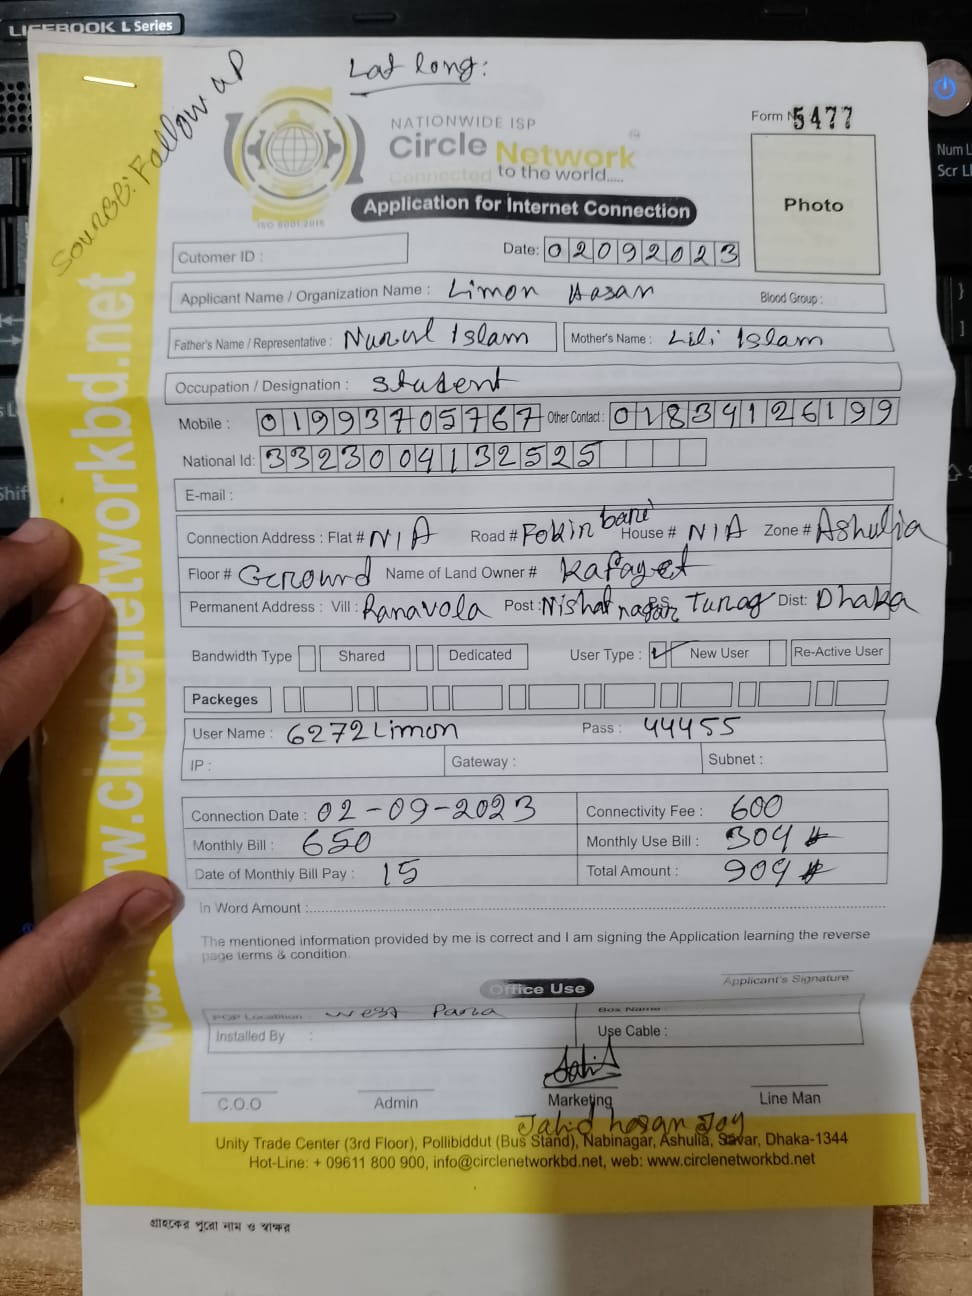 LIFEBOOK L Series
Lat long:
Source: Follow up
NATIONWIDE ISP
Circle Network
Connected to the world.....
ISO 9001:2015
Form N 5477
Application for Internet Connection
Photo
Num L
Scr L
Cutomer ID :
Date: 02092023
Applicant Name / Organization Name : Limon Hasan Blood Group :
Father's Name / Representative : Nurul Islam Mother's Name : Lili Islam
Occupation / Designation : Student
Mobile : 01993705767 Other Contact : 01834126199
National Id: 3323004132525
E-mail :
Connection Address : Flat # N/A Road # Fokin bari House # N/A Zone # Ashulia
Floor # Ground Name of Land Owner # Kafayet
Permanent Address : Vill : Ranavola Post : Nishat nagar P.S. Turag Dist: Dhaka
Bandwidth Type Shared Dedicated User Type : ✓ New User Re-Active User
Packeges
User Name : 6272Limon Pass : 44455
IP : Gateway : Subnet :
Connection Date : 02-09-2023 Connectivity Fee : 600
Monthly Bill : 650 Monthly Use Bill : 304
Date of Monthly Bill Pay : 15 Total Amount : 904
In Word Amount :
The mentioned information provided by me is correct and I am signing the Application learning the reverse
page terms & condition.
Applicant's Signature
Office Use
POP Location : West Para Box Name :
Installed By : Use Cable :
C.O.O Admin Marketing Line Man
Jahid hasan Joy
Unity Trade Center (3rd Floor), Pollibiddut (Bus Stand), Nabinagar, Ashulia, Savar, Dhaka-1344
Hot-Line: + 09611 800 900, info@circlenetworkbd.net, web: www.circlenetworkbd.net
web: www.circlenetworkbd.net
গ্রাহকের পুরো নাম ও স্বাক্ষর